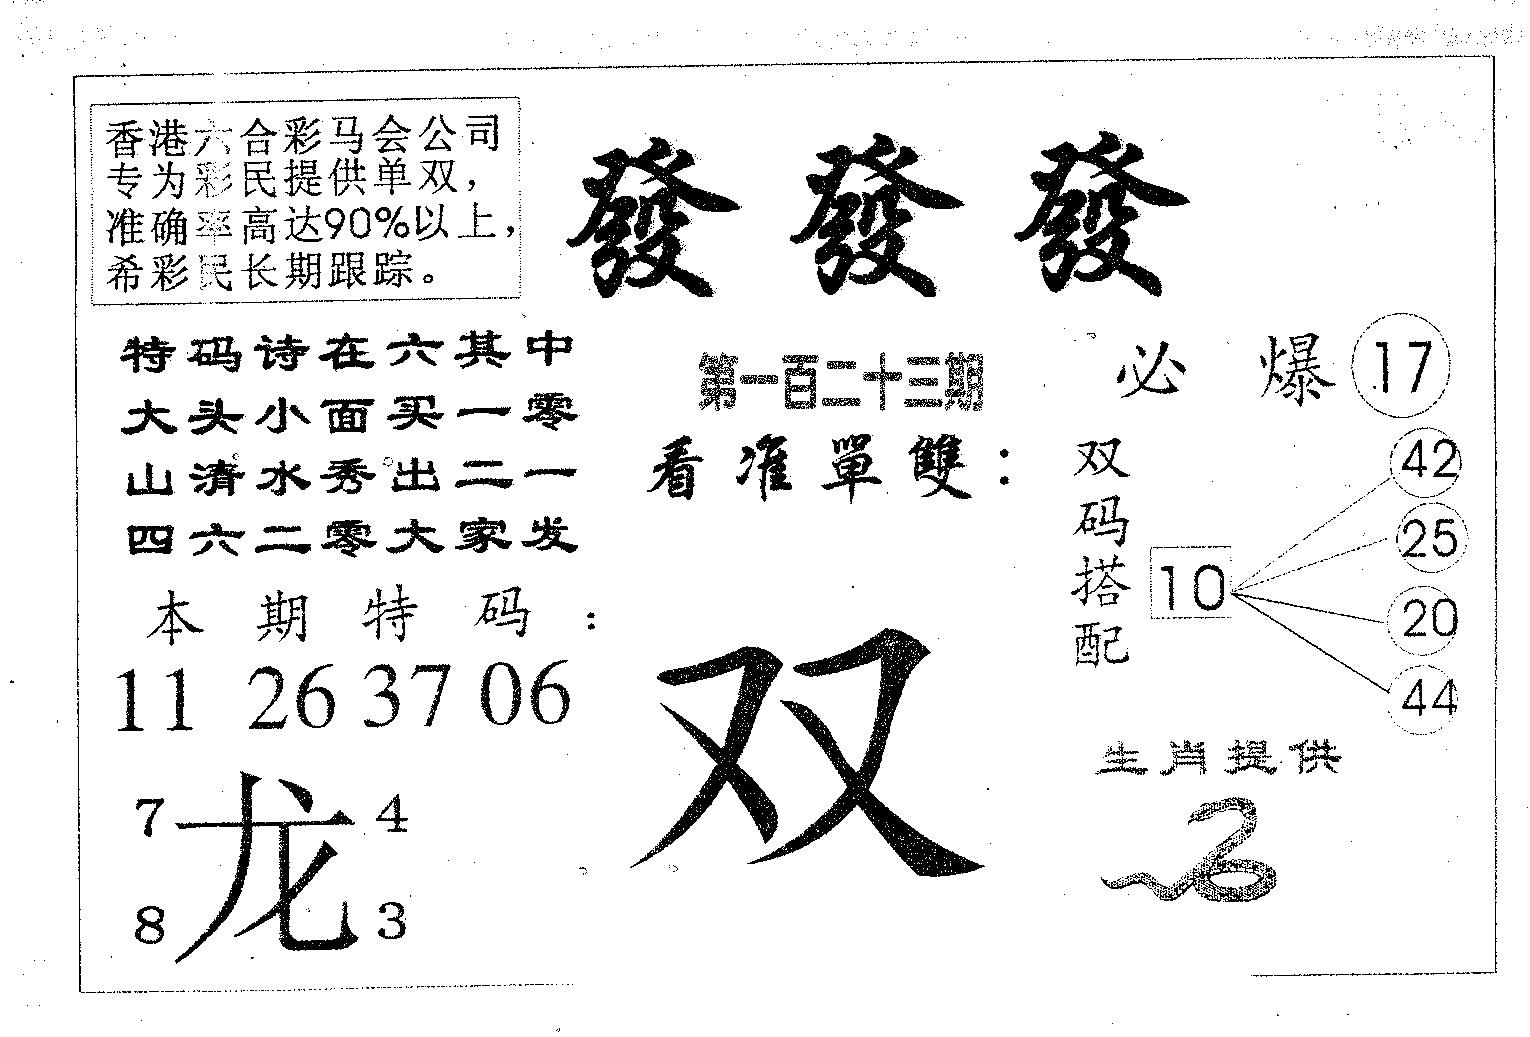 香港六合彩马会公司
专为彩民提供单双，
准确率高达90%以上，
希彩民长期跟踪。
發發發
特码诗在六其中
大头小面买一零
山清水秀出二一
四六二零大家发
第一百二十三期
看准單雙：
必爆 17
双码搭配
10
42
25
20
44
本期特码：
11 26 37 06
双
7 龙 4
8 3
生肖提供